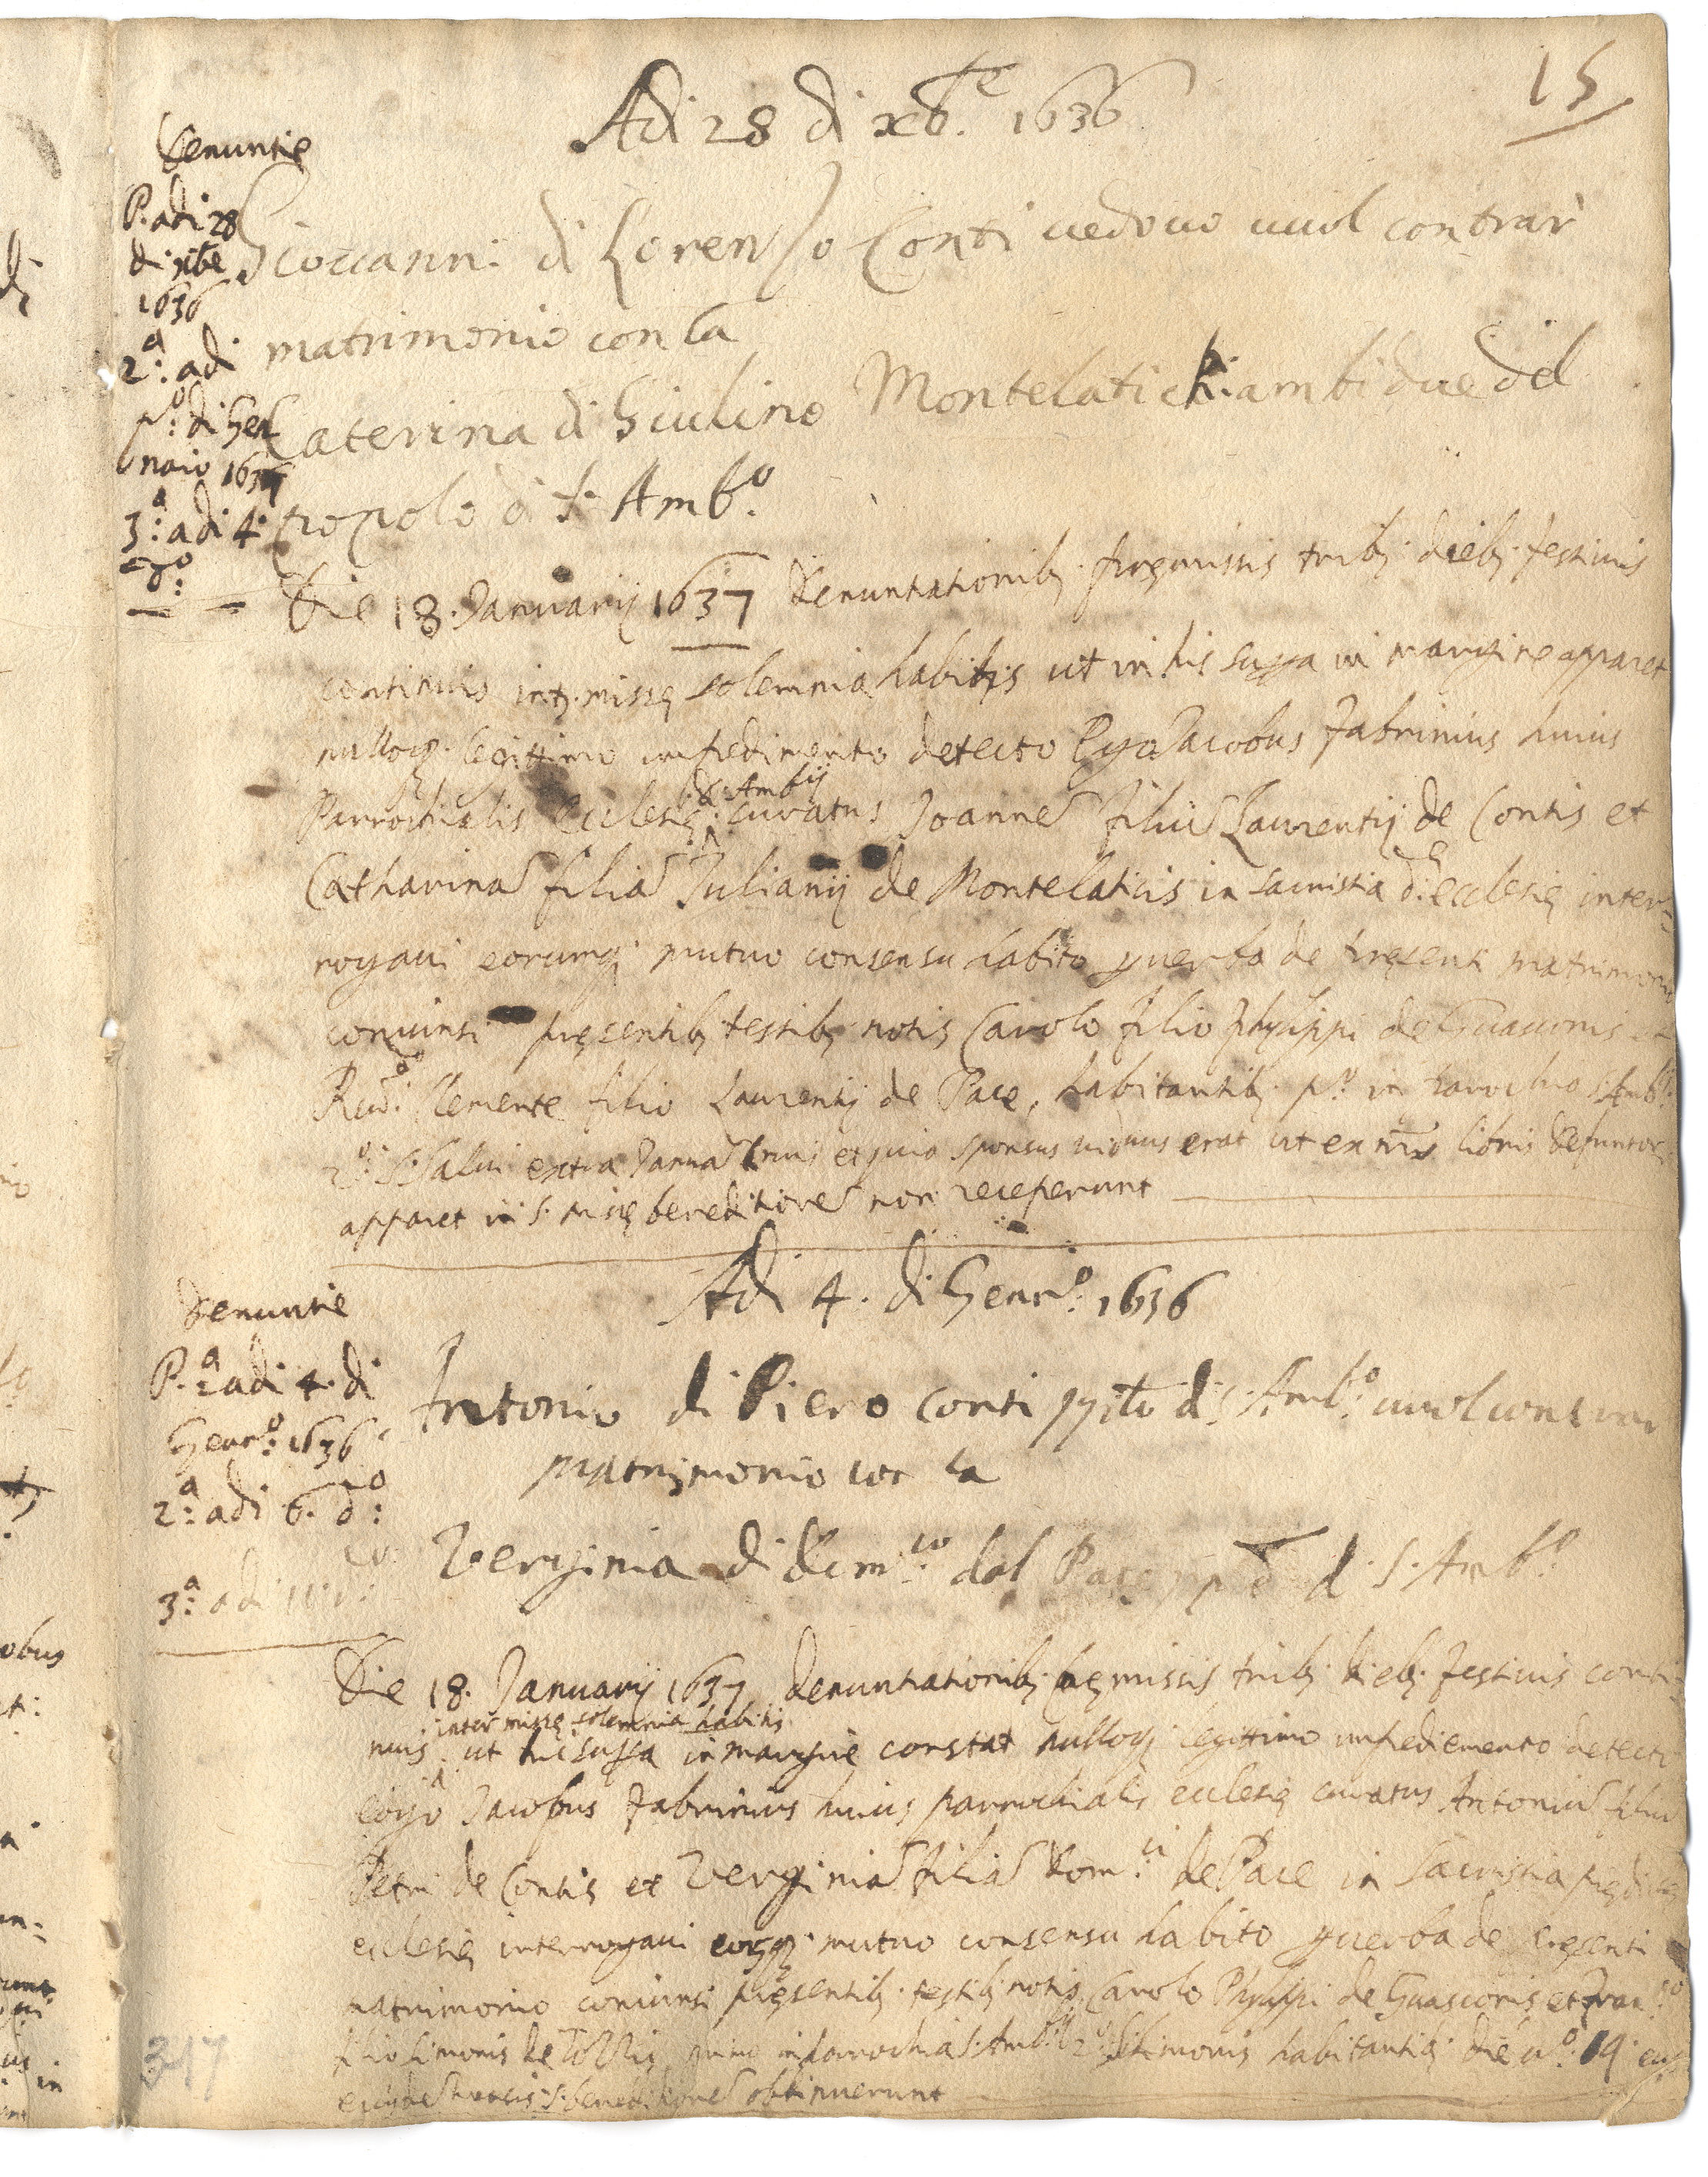 15
Adi 28 di xb.re 1636
Denuntie
P. adi 28
di xbe
1636
2.a adi
p.o di Gen
naio 1637
3.a adi 4.
d.o
Giovanni di Lorenzo Conti vedovo vuol contrar
matrimonio con la
Caterina di Giulino Montelatichi ambidue del
popolo di S. Amb.o
Die 18. Januarij 1637 Denuntiationib; premissis trib; dieb; festivis
continuis int. misse solemnia habitis ut in his supra in margine apparet
nulloq; legittimo impedimento detecto Ego Jacobus Fabrinius huius
Parrochialis Ecclesie S. Ambij curatus Joanne filiu Laurentij de Contis et
Catharina filia Julianij de Montelaticis in sacristia d.e ecclesie inter-
rogavi eorumq; mutuo consensu habito p verba de presenti matrimonio
coniunsi presentib; testib; notis Carolo filio Phylippi de Guasconis et
R.do Clemente filio Laurentij de Pace, habitantib; p.o in parochia S. Amb.ij
2.o S. Salvi extra Janua Crucis et quia sponsus viduus erat ut ex nris libris defunctor.
apparet in S. Misse beneditione non receperunt
Adi 4. di Genn.o 1636
Denuntie
P.a adi 4. di
Genn.o 1636
2.a adi 6. d.o
3.a adi 11 d.o
Antonio di Piero Conti ppto d S. Amb.o vuol contrar
matrimonio con la
Verginia di Dom.co dal Pace pp.o d. S. Amb.o
Die 18. Januarij 1637 denuntiationib; premissis trib; dieb; festivis conti-
nuis inter misse solemnia habitis ut hic supra in margine constat nulloq; legittimo impedimento detecto
ego Jacobus Fabrinius huius parrochialis ecclesie curatus Antoniu filiu
Petri de Contis et Verginia filia Dom.ci de Pace in Sacristia predicte
ecclesie interrogavi eorq; mutuo consensu habito p verba de presenti
matrimonio coniunsi presentib; testib; notis Carolo Phylippi de Guasconis et Fran.co
filio Simonis de primo in parochia S. Amb.ij 2.o S. Simonis habitantib; Die v.o 19
S. beneditione obtinuerunt
317